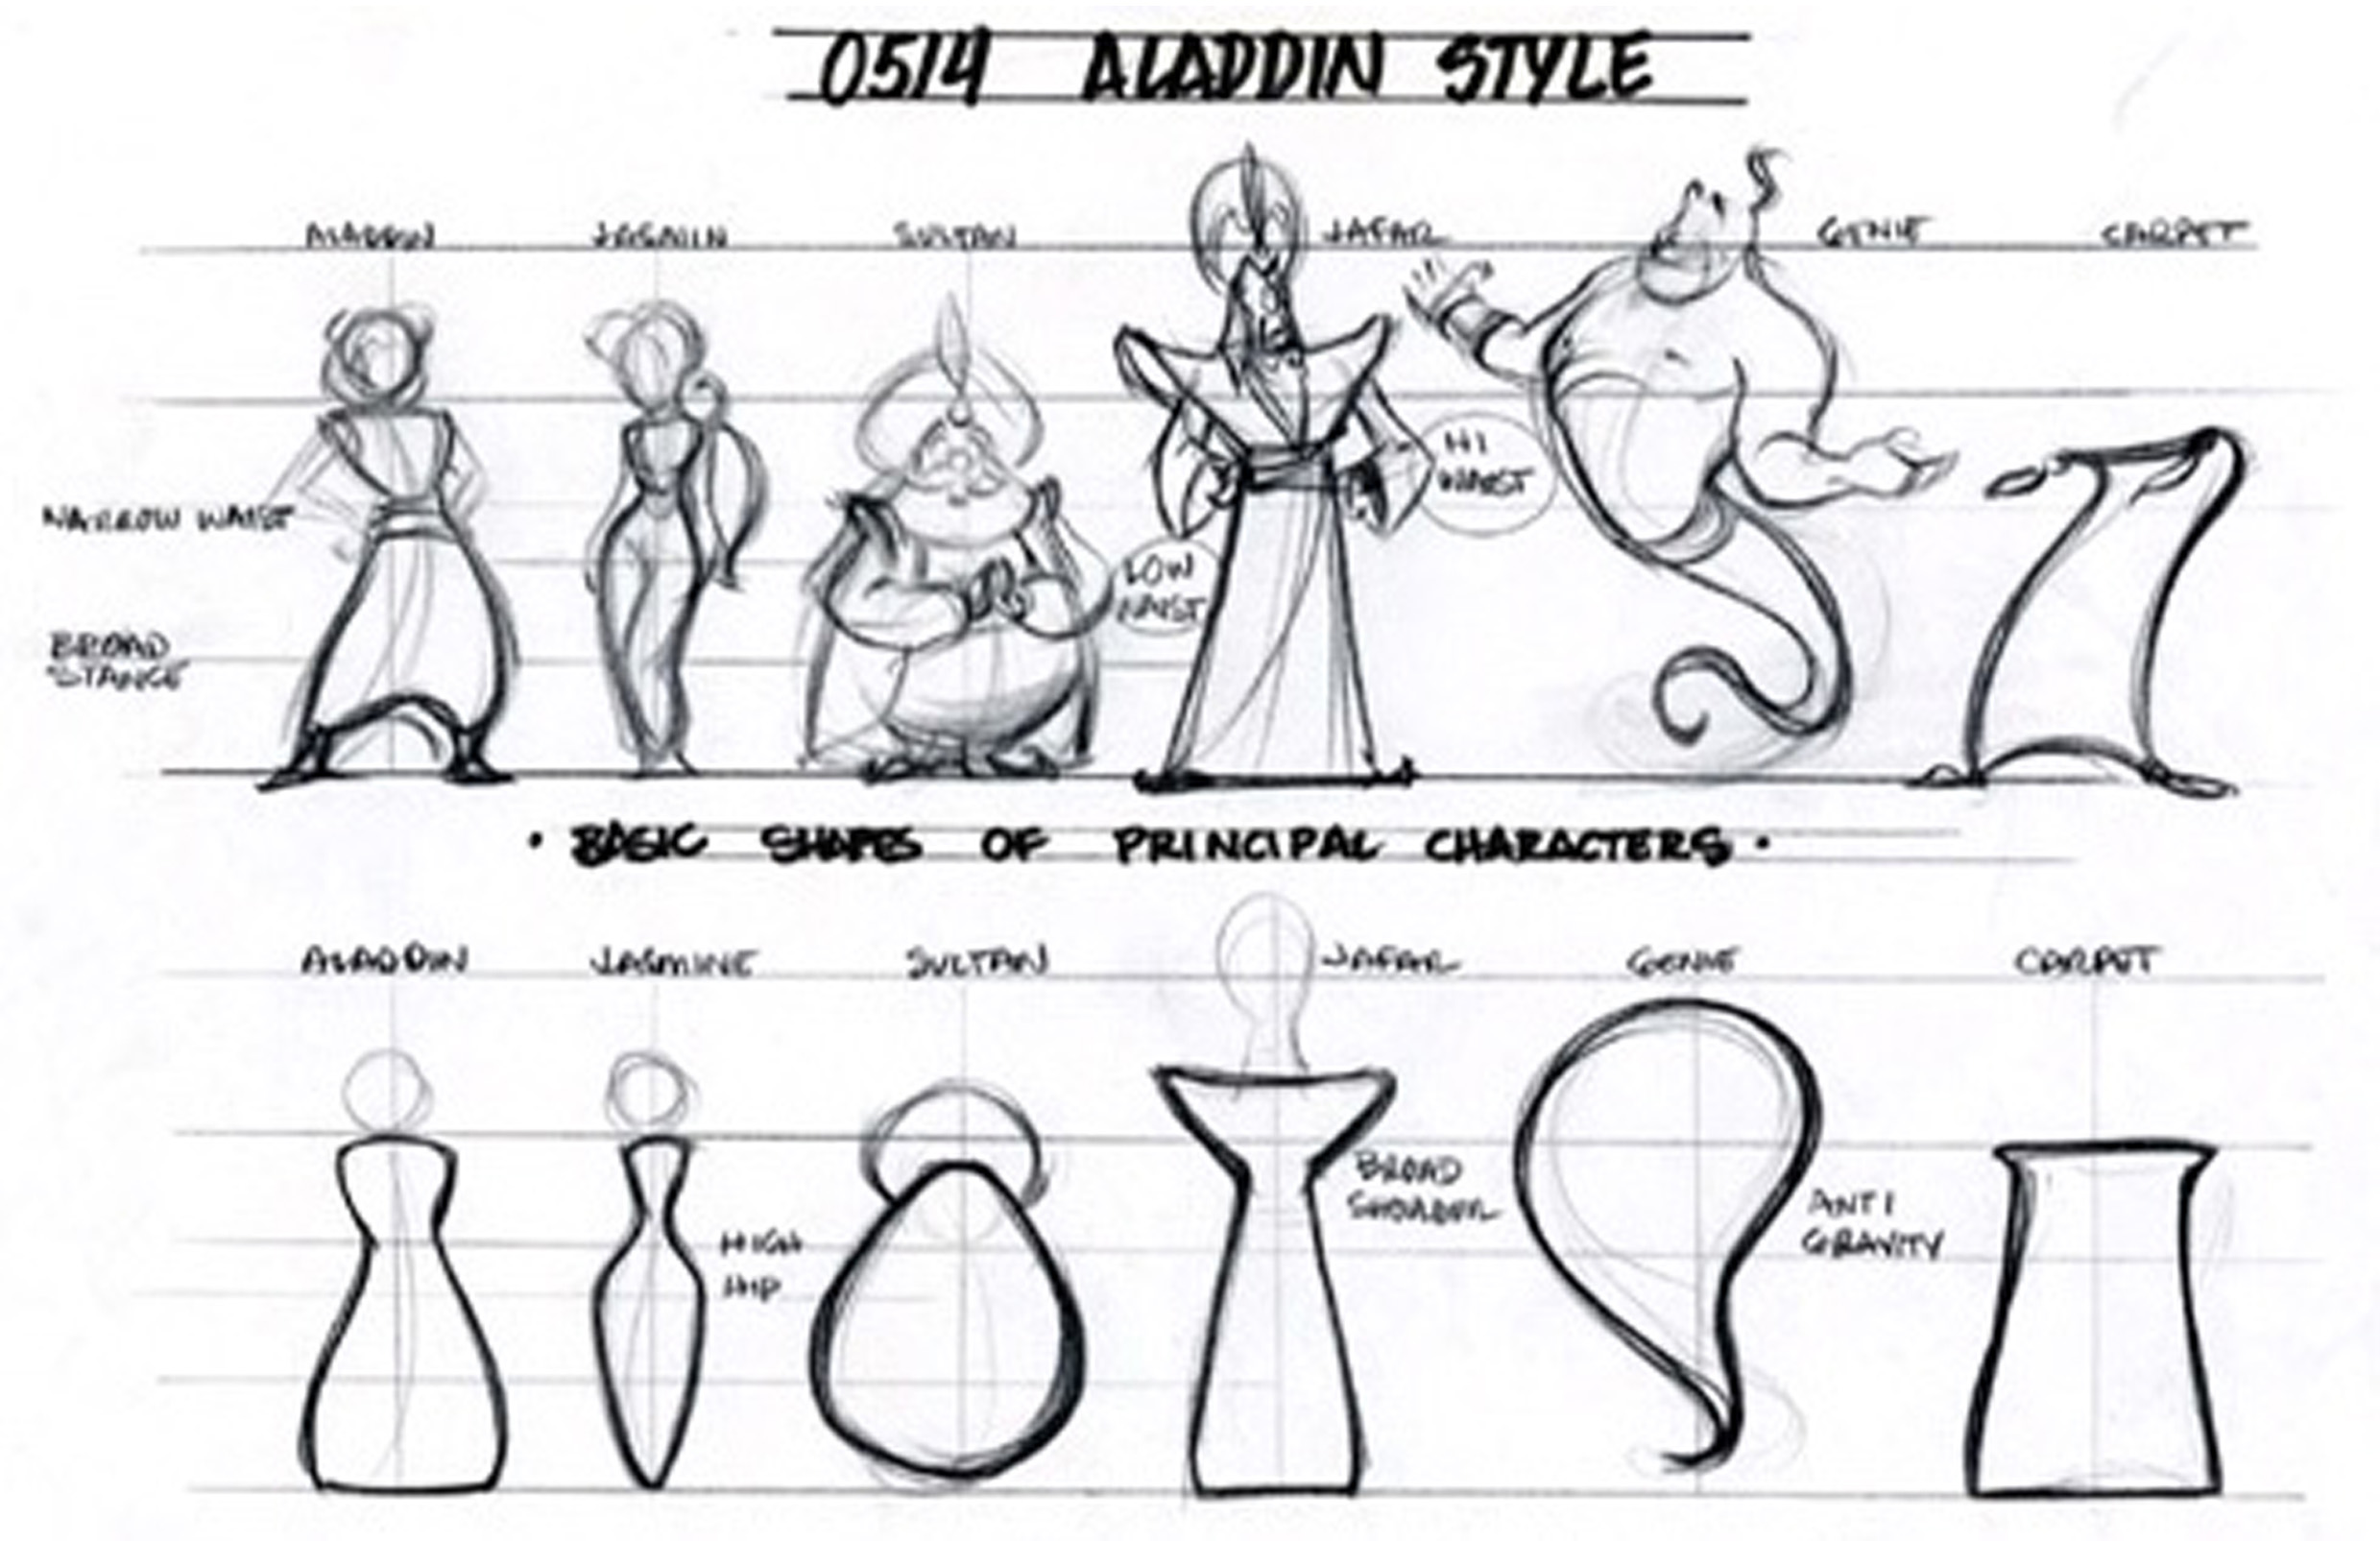 0514 ALADDIN STYLE
ALADDIN JASMIN SULTAN JAFAR GENIE CARPET
NARROW WAIST
HI
WAIST
LOW
WAIST
BROAD
STANCE
• BASIC SHAPES OF PRINCIPAL CHARACTERS •
ALADDIN JASMINE SULTAN JAFAR GENIE CARPET
BROAD
SHOULDER
ANTI
GRAVITY
HIGH
HIP